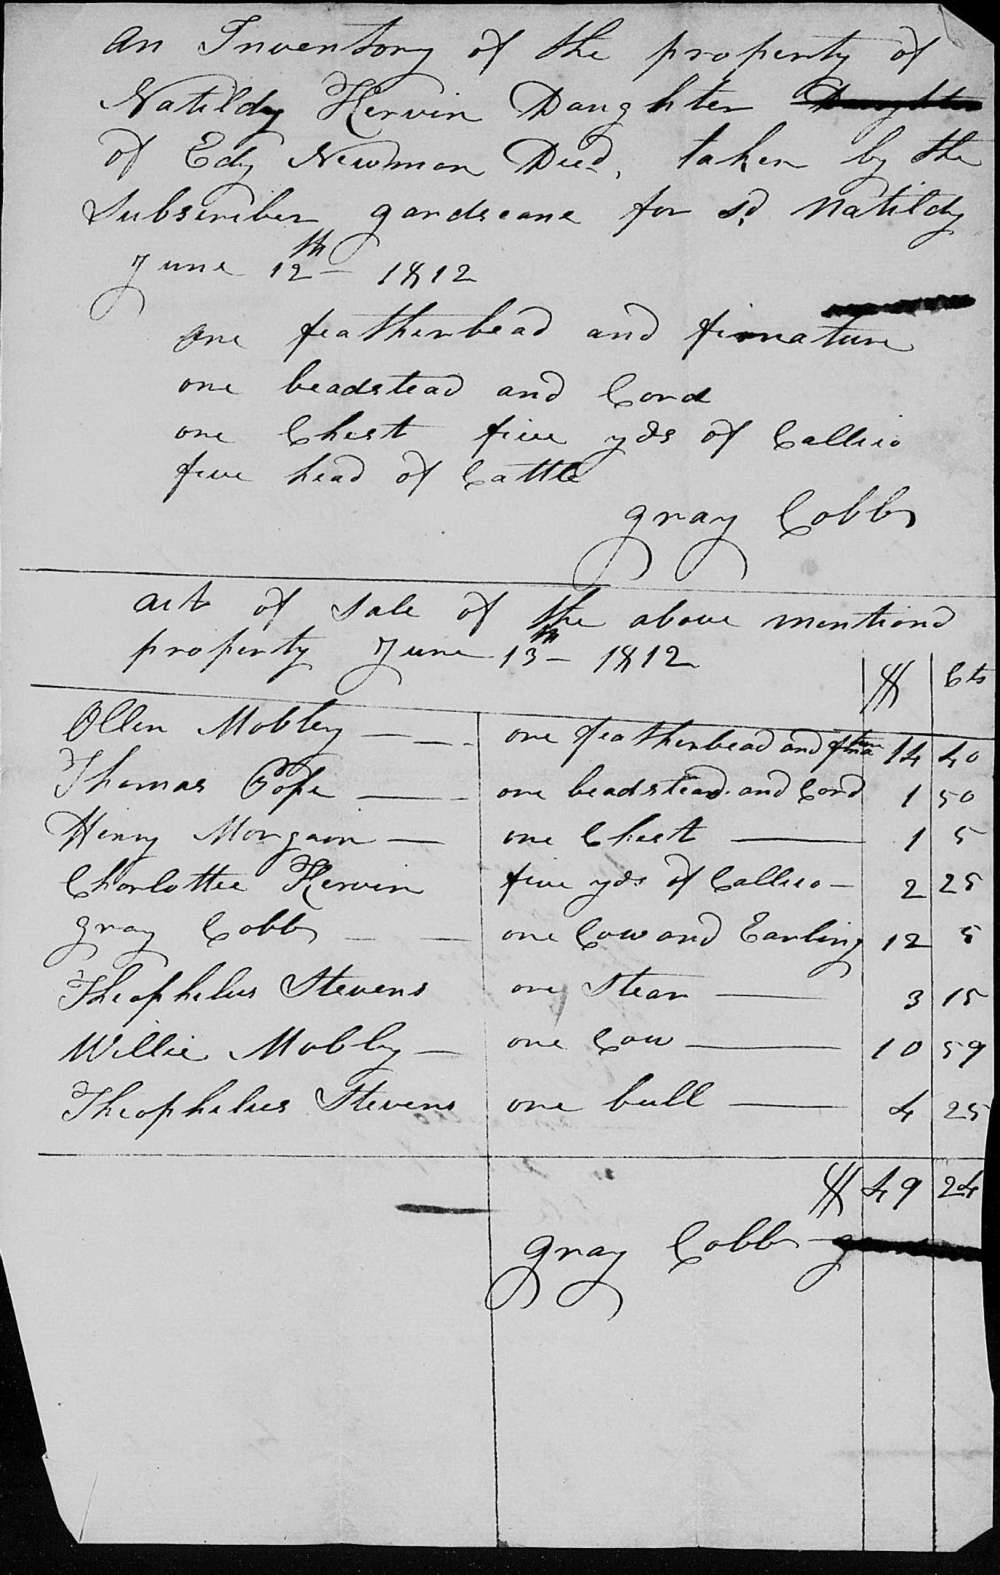 an Inventory of the property of
Natildy Kervin Daughter Daughter
of Edy Newmon Died, taken by the
Subscriber gardseane for sd Natildy
June 12th 1812
one featherbead and firnature
one beadstead and Cord
one Chest five yds of Callico
five head of Cattle
Gray Cobb
act of Sale of the above mentiond
property June 13th 1812
$ Cts
Ollen Mobley one featherbead and 14 40
Thomas Pope one beadstead and Cord 1 50
Henry Morgain one Chest 1 5
Charlottee Kervin five yds of Callico 2 25
Gray Cobb one Cow and Earling 12 5
Theophelus Stevens one Stear 3 15
Willie Mobley one Cow 10 59
Theophelus Stevens one bull 4 25
$ 49 24
Gray Cobb